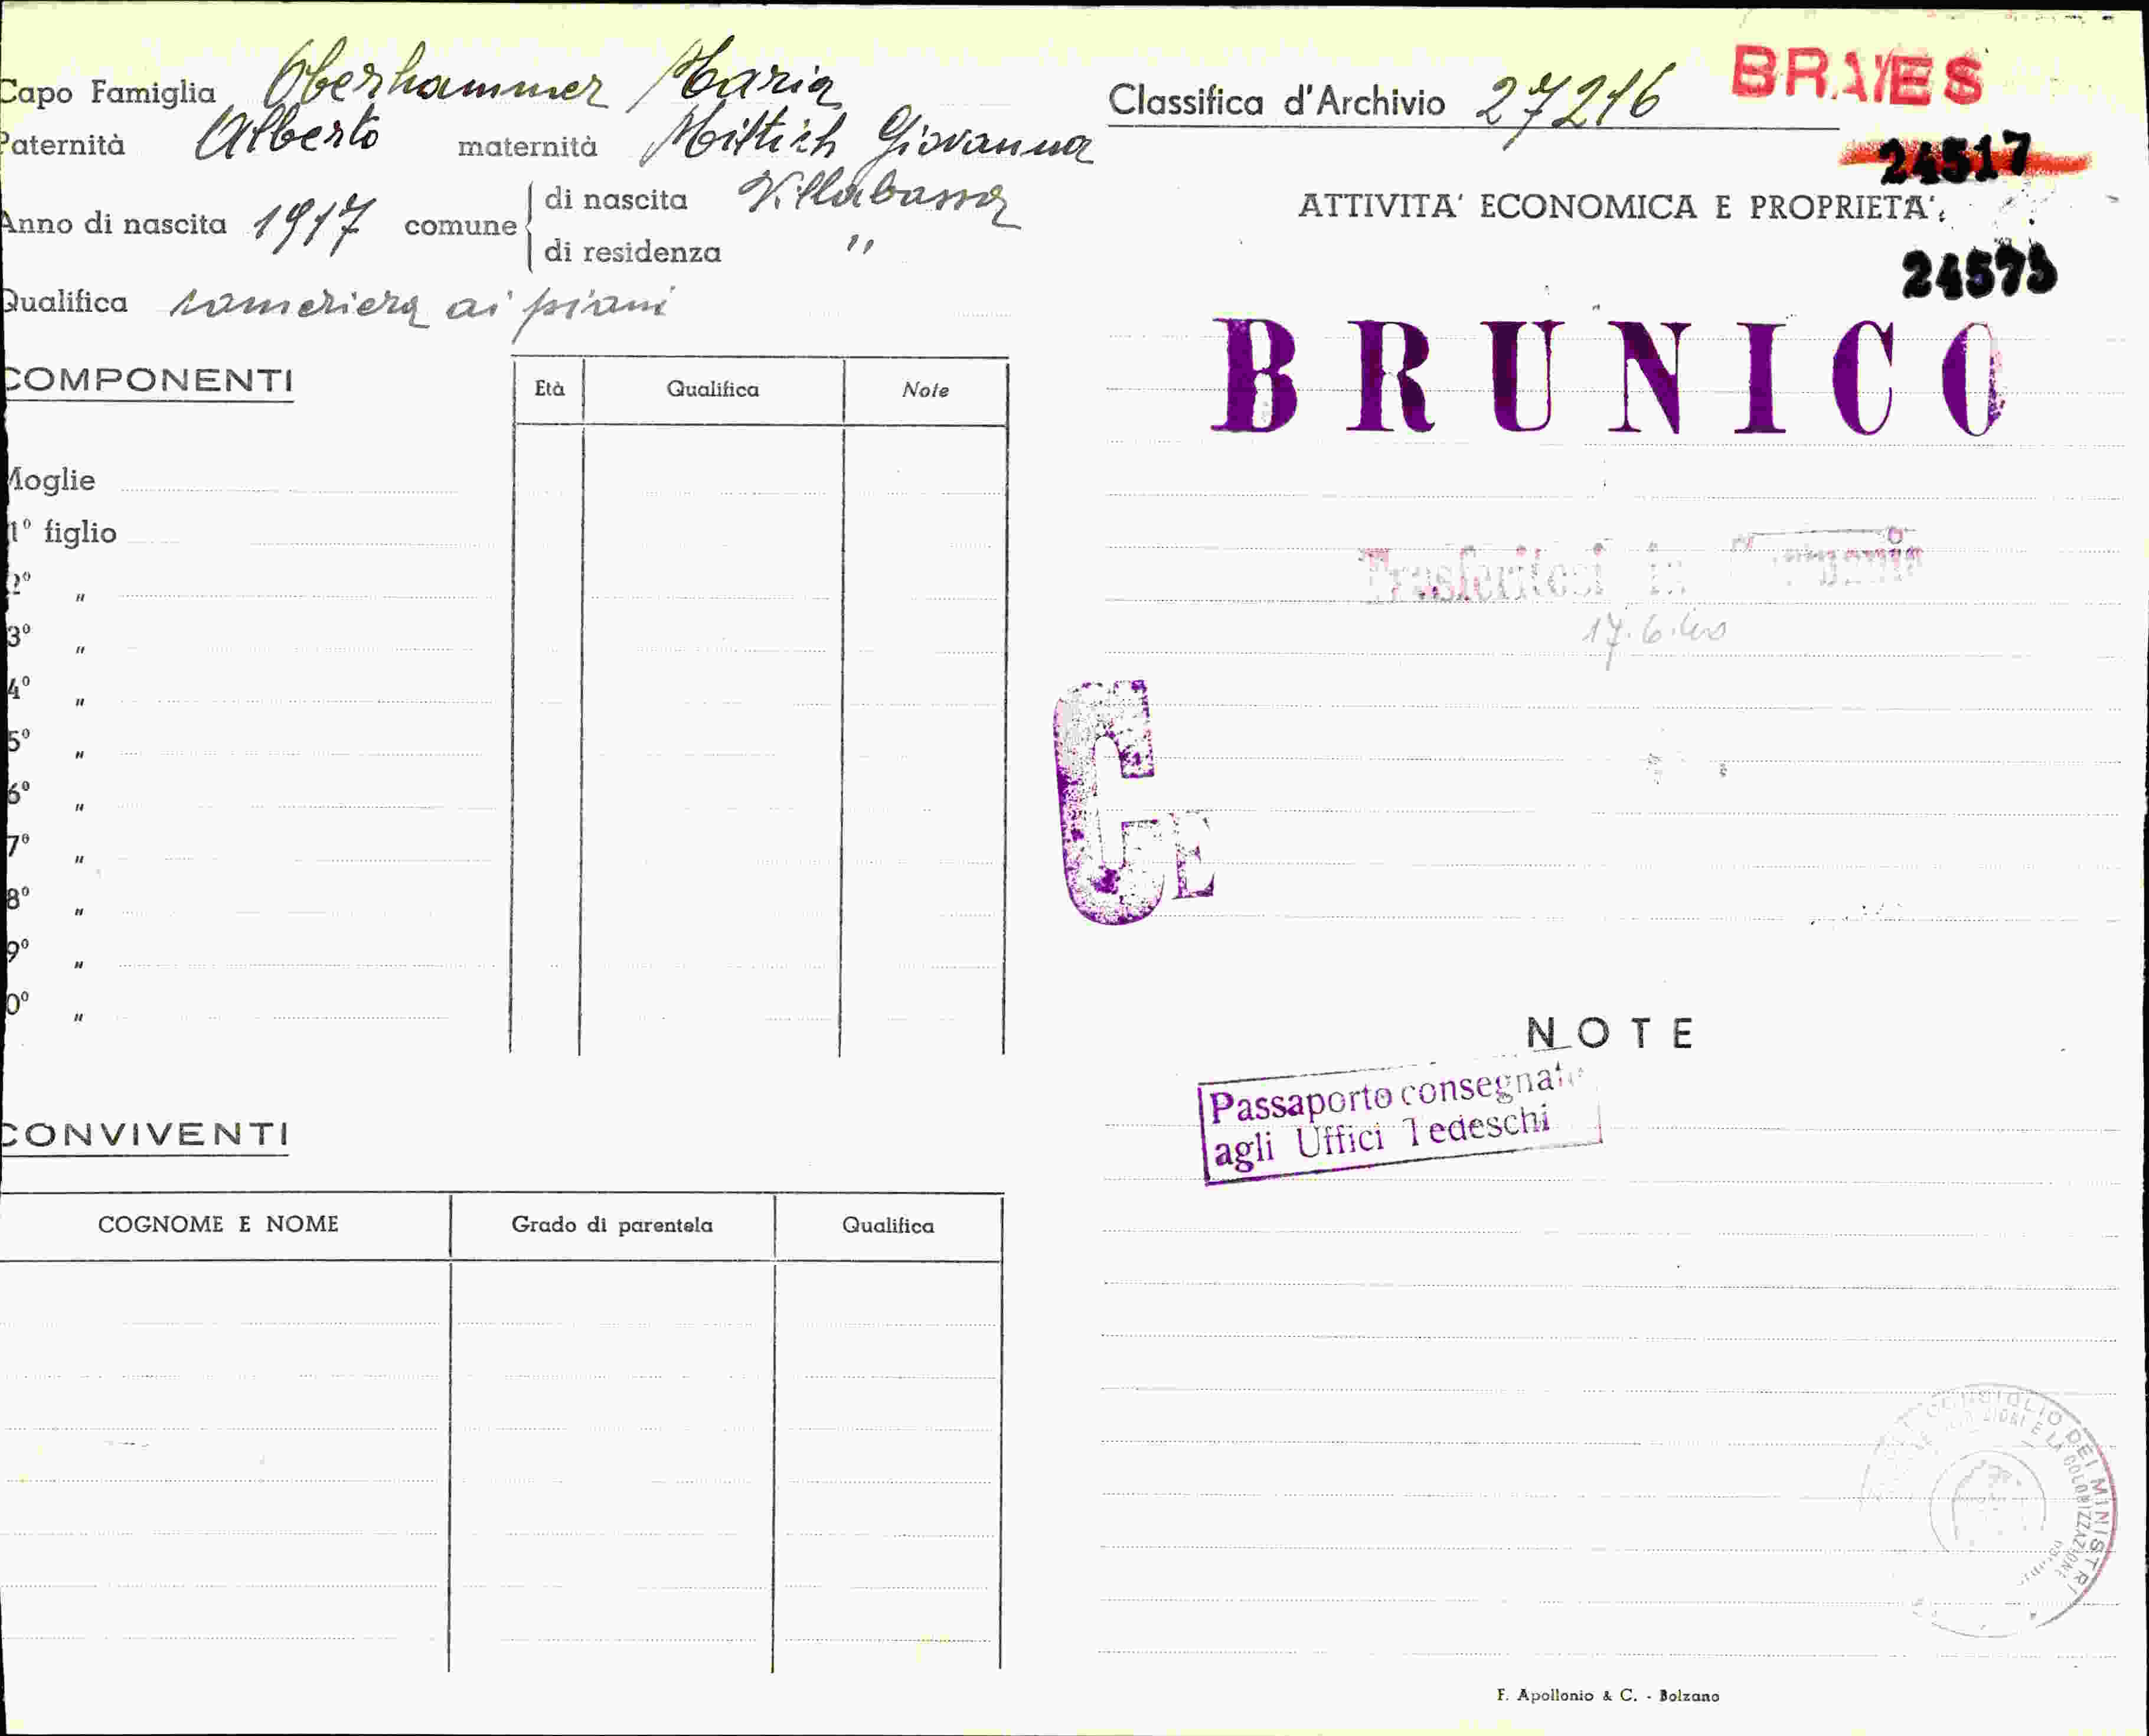 Capo Famiglia Oberhammer Maria
Paternità Alberto maternità Mittich Giovanna
Anno di nascita 1917 comune di nascita Villabassa
di residenza "
Qualifica cameriera ai piani
COMPONENTI Età Qualifica Note
Moglie
1º figlio
2º "
3º "
4º "
5º "
6º "
7º "
8º "
9º "
0º "
CONVIVENTI
COGNOME E NOME Grado di parentela Qualifica
Classifica d'Archivio 27216 BRAIES
24517
ATTIVITA' ECONOMICA E PROPRIETA'
24573
BRUNICO
Trasferitosi in Germania
17.6.40
CE
NOTE
Passaporto consegnato
agli Uffici Tedeschi
CONSIGLIO DEI MINISTRI
E LA COLONIZZAZIONE
F. Apollonio & C. - Bolzano